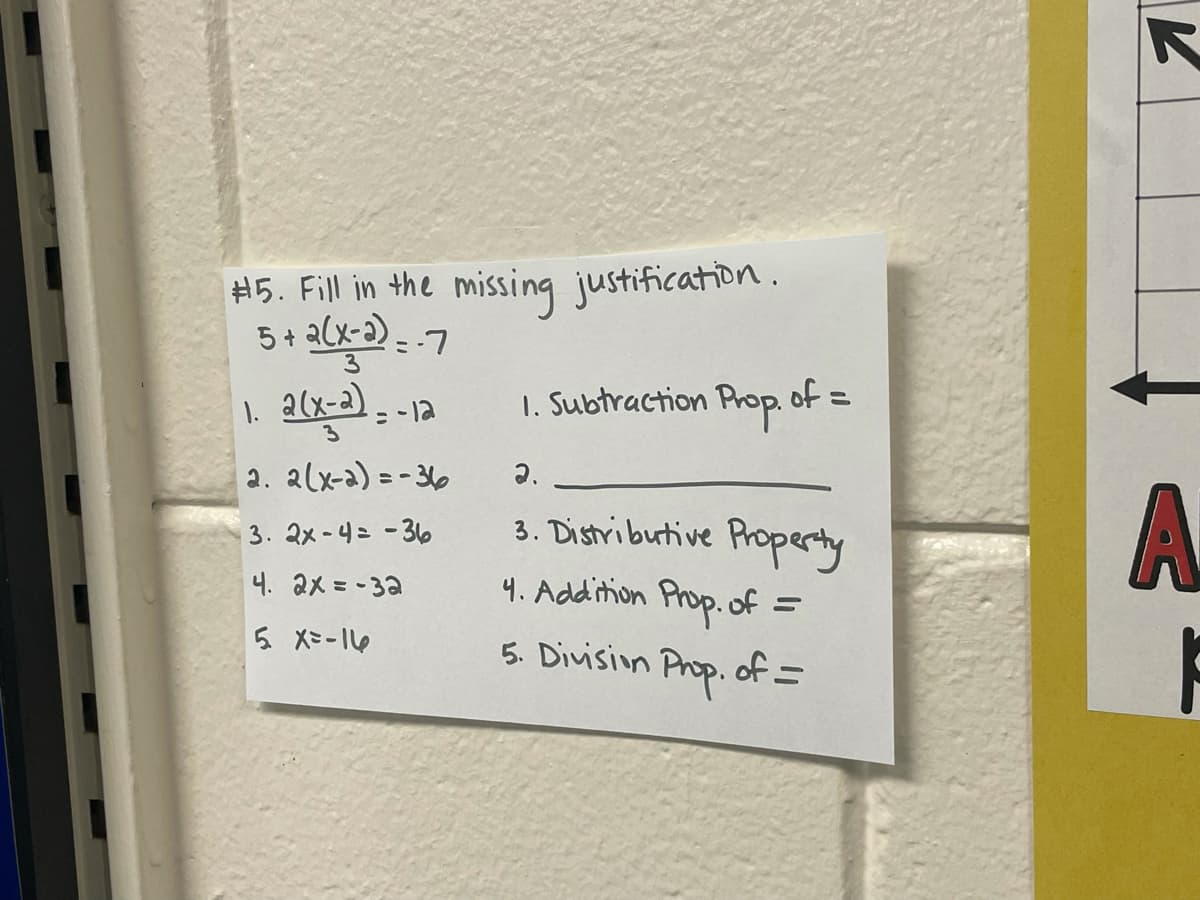 #5. Fill in the missing justification.
5 + 2(x-2)/3 = -7
1. 2(x-2)/3 = -12 1. Subtraction Prop. of =
2. 2(x-2) = -36 2. ________
3. 2x - 4 = -36 3. Distributive Property
4. 2x = -32 4. Addition Prop. of =
5. x = -16 5. Division Prop. of =
A